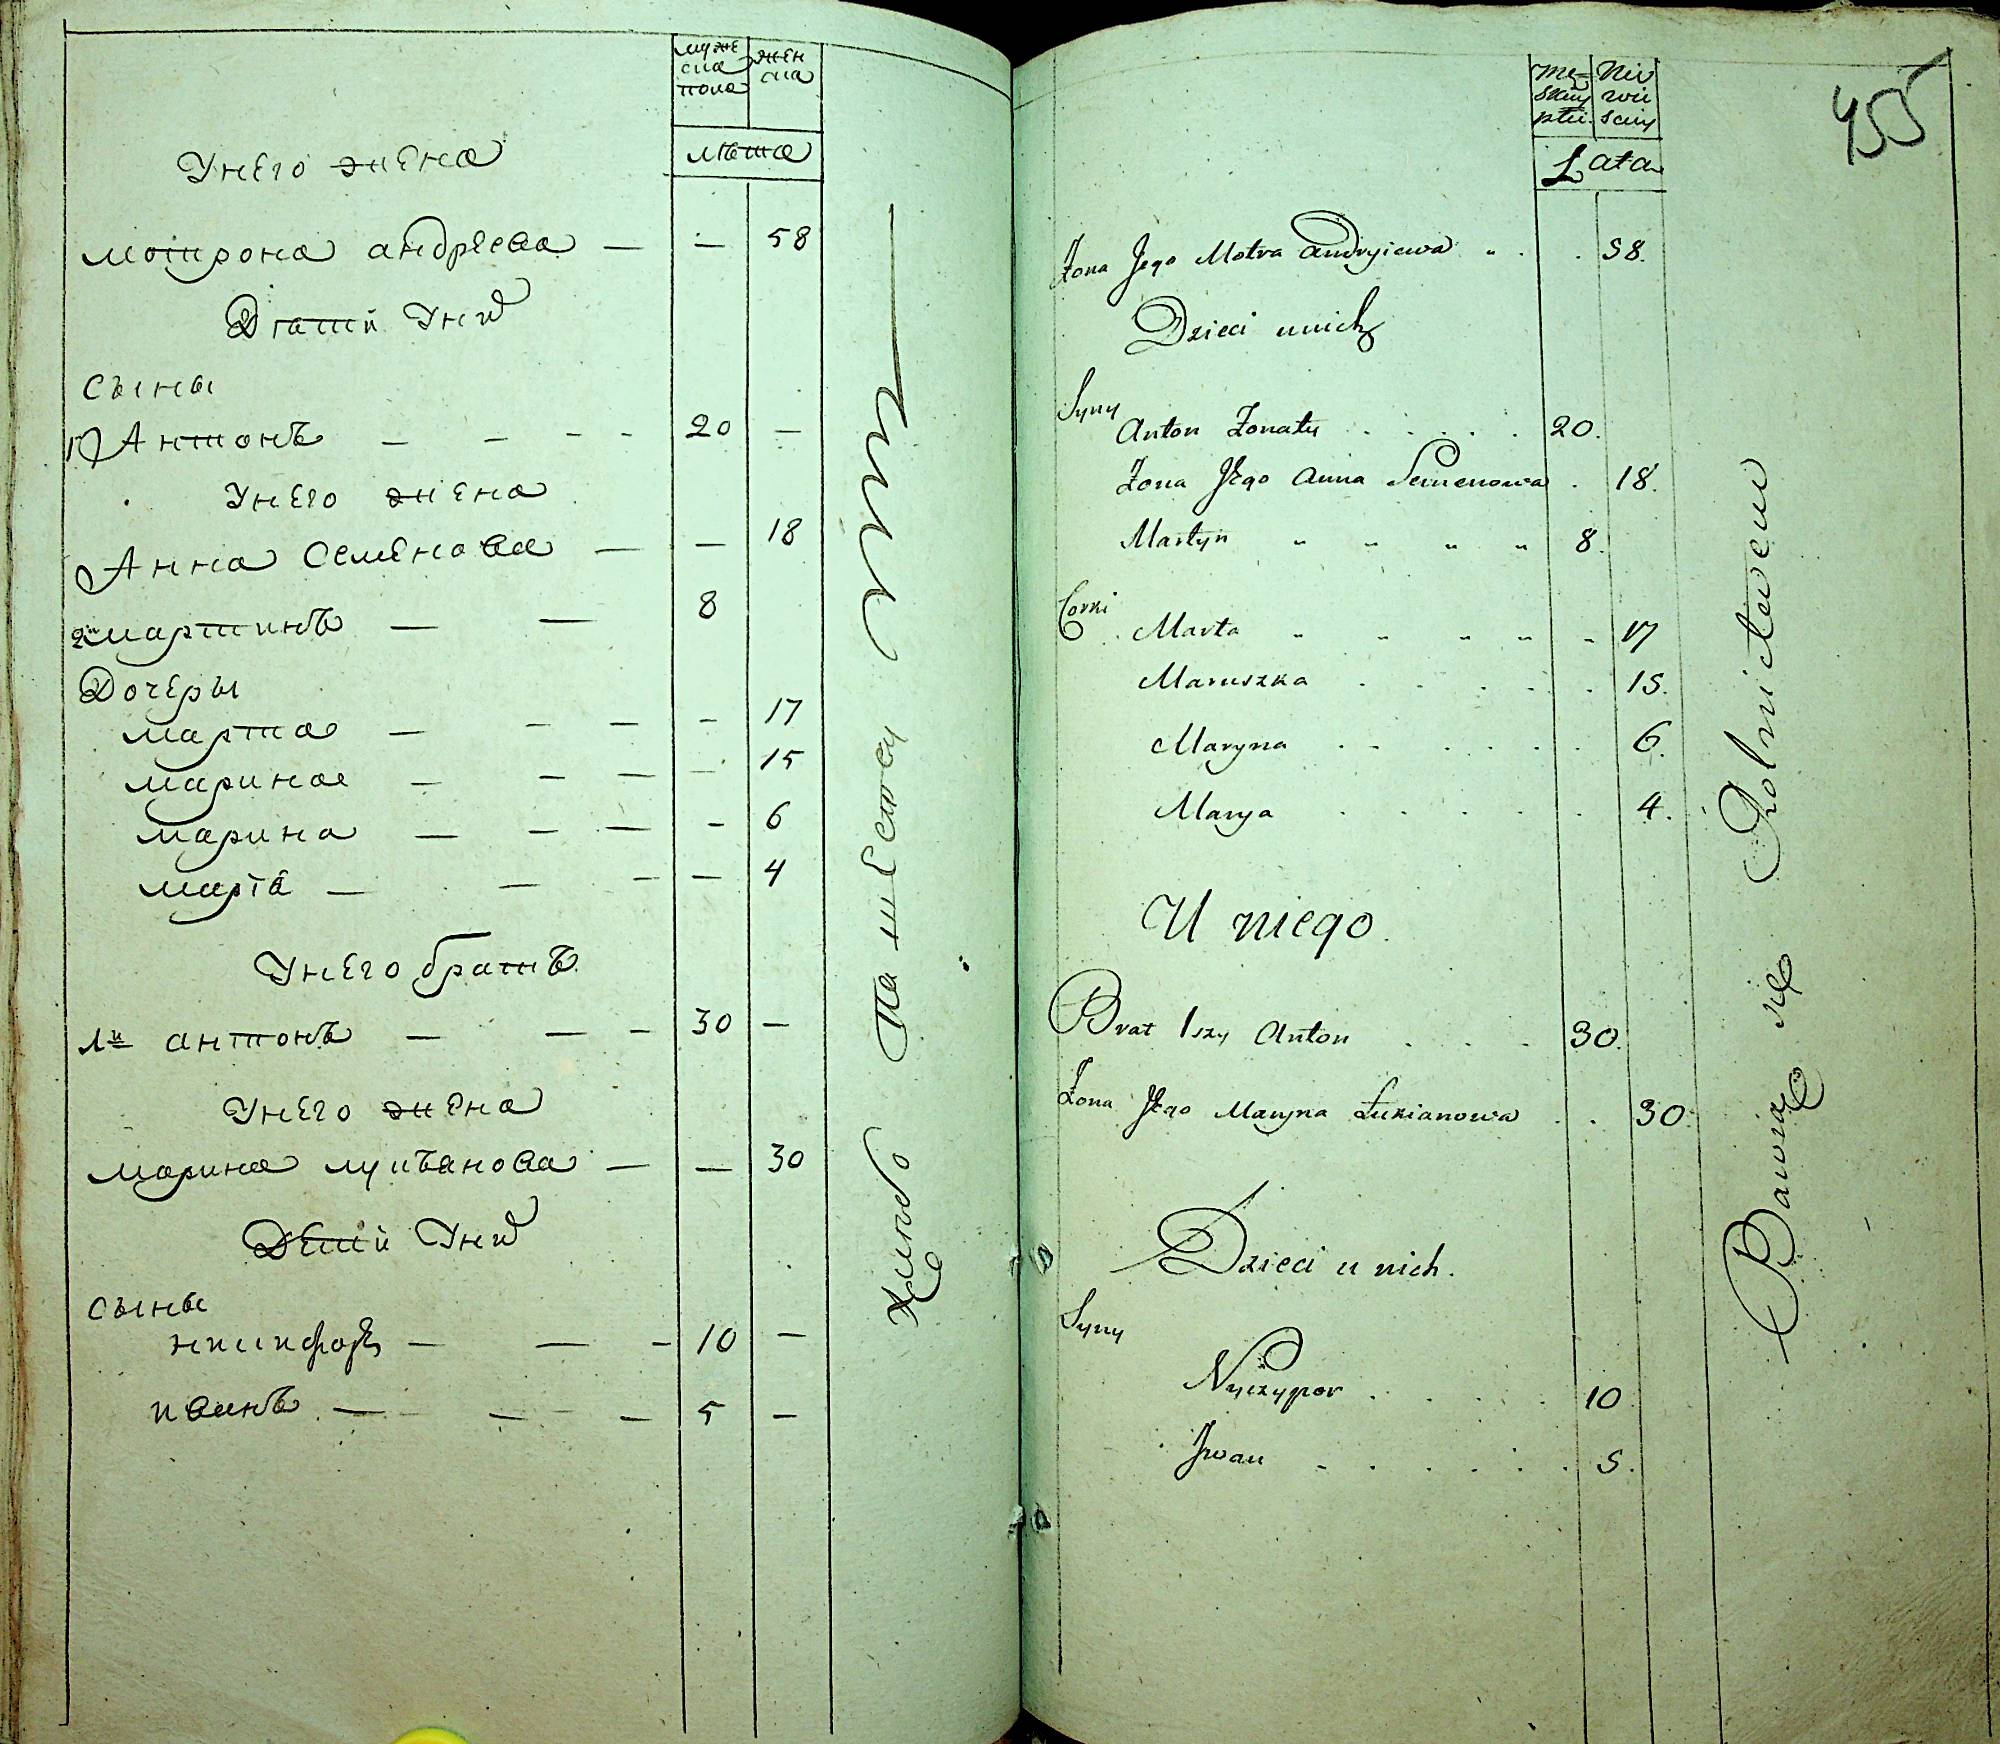 муже
ска
пола
жен
ска
лѣта
Унего жена
мотрона андреева — — 58
Дѣтй Уних
Сыны
1й Антонъ — — - - 20 —
Унего жена
Анна Семенова — — 18
2й мартинъ — — 8
Дочеры
марта — - — - 17
марина — - — - 15
марина — - — - 6
маріа — - - — 4
Унего братъ
1й антонъ — — - 30 —
Унего жена
марина лукъянова — — 30
Дѣтй Уних
сыны
никифоръ — — - 10 —
иванъ — — — 5 —
Męz
skiey
płci
Nie
wie
sciey
Lata
455
Zona Jego Motra Andryiewa 58.
Dzieci u nich
Syny
Anton Zonaty 20.
Zona Jego Anna Semenowa 18.
Martyn 8.
Corki
Marta 17
Maruszka 15.
Maryna 6.
Marya 4.
U niego
Brat 1szy Anton 30.
Zona Jego Maryna Łukianowa 30.
Dzieci u nich.
Syny
Nyczypor 10
Iwan 5.
Bawią się Rolnictwem